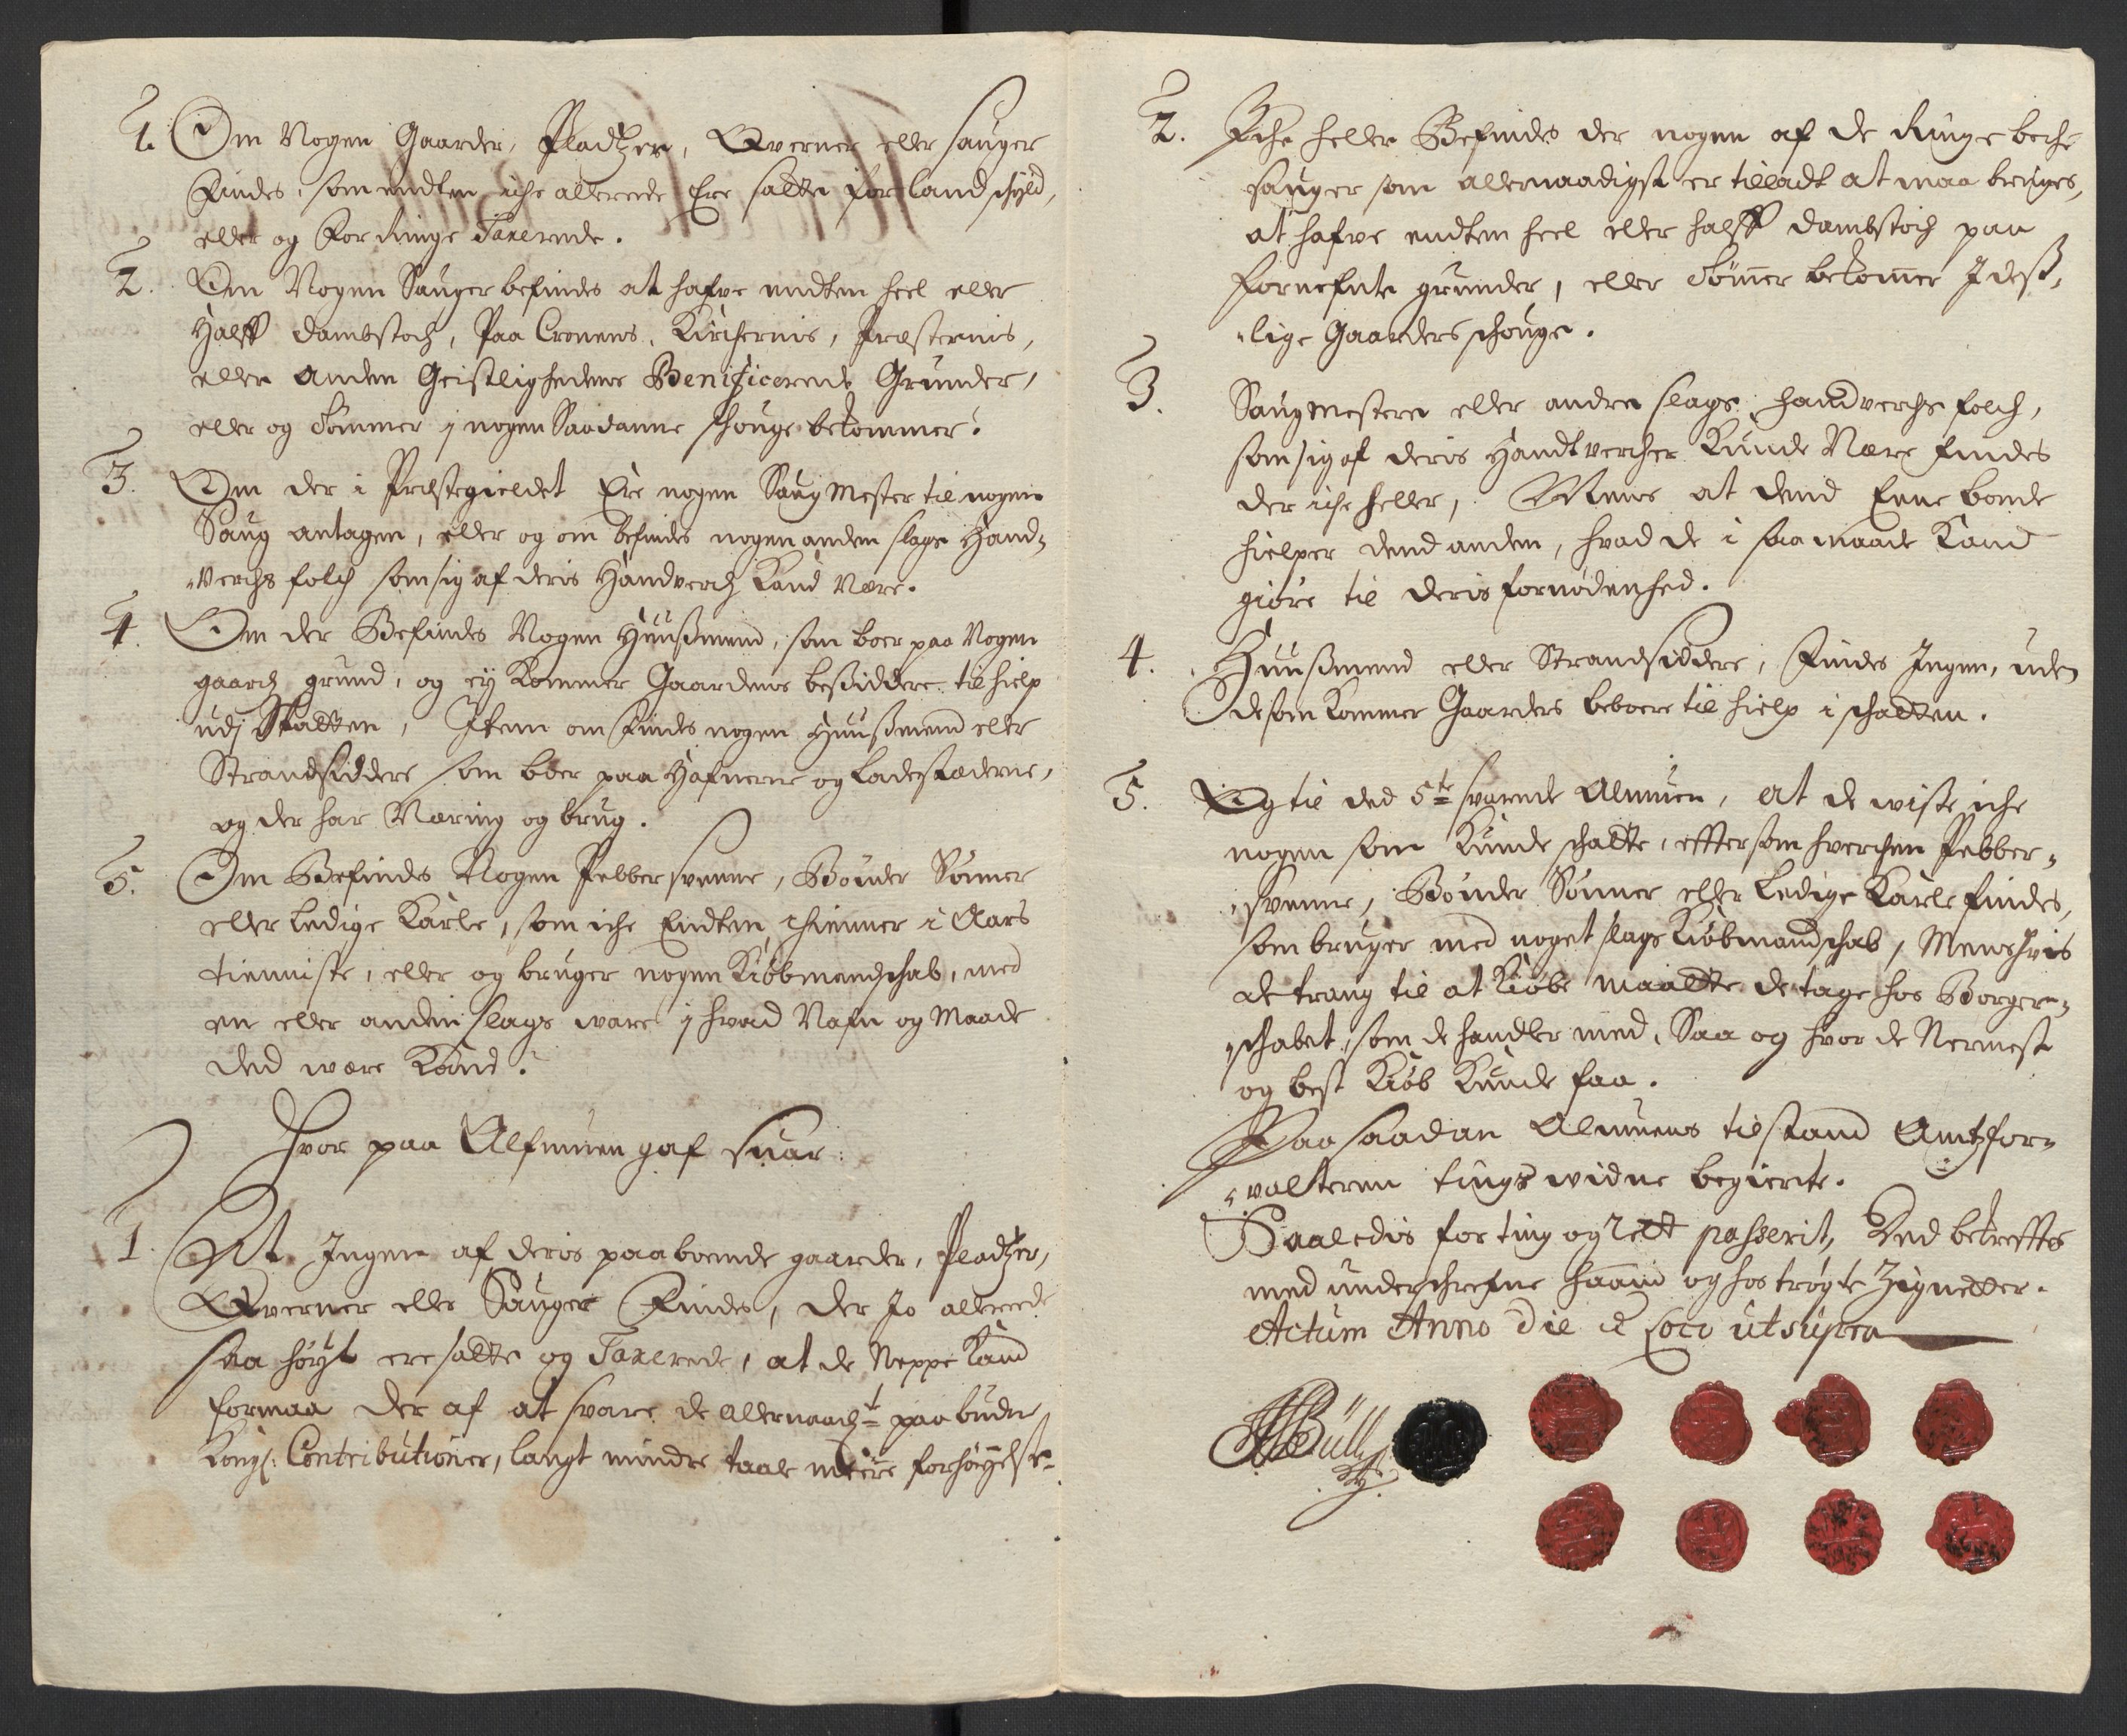 1. Om Nogen Gaarder, Pladtzer, Qverner eller sauger
Findes, som endten iche allerede Ere satte for land schyld,
eller og For Ringe Taxerede.
2. Om Nogen Sauger befindes at hafve endten heel eller
Halff dambstoch, Paa Cronens, Kirchernis, Præsternis,
eller anden Geistlighedens Benificerede Grunder,
eller og Tømmer j nogen Saadanne schouge bekommer?
3. Om der i Præstegieldet Ere nogen Saug Mester til nogen
Saug antagen, eller og om befindes nogen anden slags Hand-
verchs folch som sig af deris Handverch Kand Nære.
4. Om der Befindes Nogen Huußmend, som boer paa Nogen
gaardz grund, og ey Kommer Gaardens beßiddere til hielp
udj Skatten, Item om findes nogen Huußmend eller
Strandsiddere som boer paa Hafnerne og Ladestæderne,
og der har Næring og brug.
5. Om Befindes Nogen Pebber svenne, Bønder Sønner
eller Ledige Karle, som iche Endten thienner i Aars
tienniste, eller og bruger nogen Kiøbmandschab, med
en eller anden slags ware j hvad Nafn og Maade
ded være Kand?
Hvor paa Allmuen gaf suar:
1. At Ingen af deris paaboende gaarder, Pladtzer,
Qverner eller Sauger Findes, der Jo allerede
saa høyt ere satte og Taxerede, at de Neppe Kand
formaa der af at svare de allernaadt paabudne
Kongl: Contributioner, langt mindre taale meere forhøyelse.
2. Iche heller Befindes der nogen af de Ringe beche
sauger som allernaadigst er tilladt at maa bruges,
at hafve endten heel eller halff dambstoch paa
fornefnte grunder, eller Tømmer bekommer J deß-
lige Gaarders schouge.
3. Saugmestere eller andre slags handverchs folch,
som sig af deris Handtvercher Kunde Nære findes
der iche heller, Mens at dend Eene bonde
hielper dend anden, hvad de i saa maade Kand
giøre til deris fornødenhed.
4. Huußmend eller Strandsiddere, Findes Ingen, uden
de som Kommer Gaarders beboere til hielp i schatten.
5. Og til ded 5te svarede Almuen, at de wiste iche
nogen som Kunde schatte, effter som hverchen Pebber-
svenne, Bønder Sønner eller Ledige Karle findes,
som bruger med noget slags Kiøbmandschab, Mens hvis
de trang til at Kiøbe maatte de tage hos Borger-
schabet, som de handler med, Saa og hvor de Nermest
og best Kiøb Kunde faa.
Paa saadan Almuens tilstand Amtzfor-
valteren tings widne begierte.
Saaledis for ting og Rett passerit, Ded bekrefftes
med underschrefne haand og hos trøgte Zignetter.
Actum Anno Die et Loco ut supra